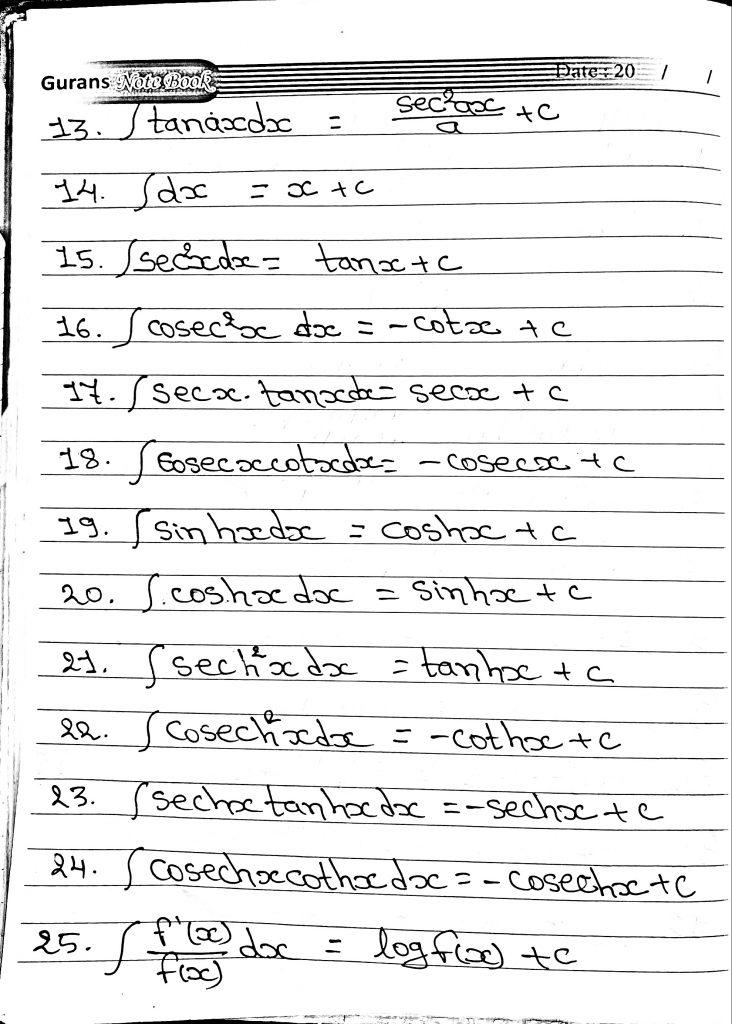 Gurans Note Book Date : 20 / /
13. ∫tanaxdx = sec²ax/a + c
14. ∫dx = x + c
15. ∫sec²xdx = tanx + c
16. ∫cosec²x dx = -cotx + c
17. ∫secx. tanxdx = secx + c
18. ∫cosecxcotxdx = -cosecx + c
19. ∫sinhxdx = coshx + c
20. ∫.coshxdx = sinhx + c
21. ∫sech²xdx = tanhx + c
22. ∫cosech²xdx = -cothx + c
23. ∫sechxtanhxdx = -sechx + c
24. ∫cosechxcothxdx = -cosechx + c
25. ∫f'(x)/f(x) dx = logf(x) + c